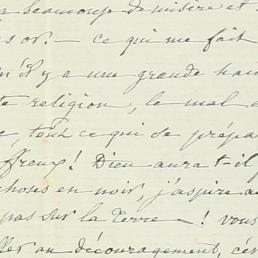 a beaucoup de misère et
es or. — ce qui me fait
qu'il y a une grande hain
te religion, le mal e
e, tout ce qui se prépa
ffreux! Dieu aura-t-il p
choses en noir, j'aspire a
pas sur la terre —! vous
ller au découragement, c'es